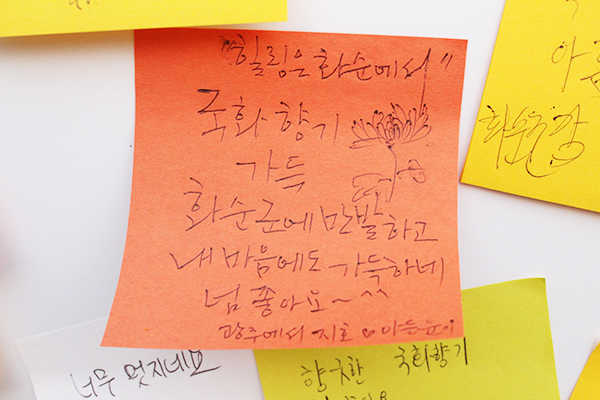 "힐링은 화순에서"
국화 향기
가득
화순군에 만발하고
내 마음에도 가득하네
넘 좋아요~^^
광주에서 지호♡아들
너무 멋지네요
향긋한 국화향기